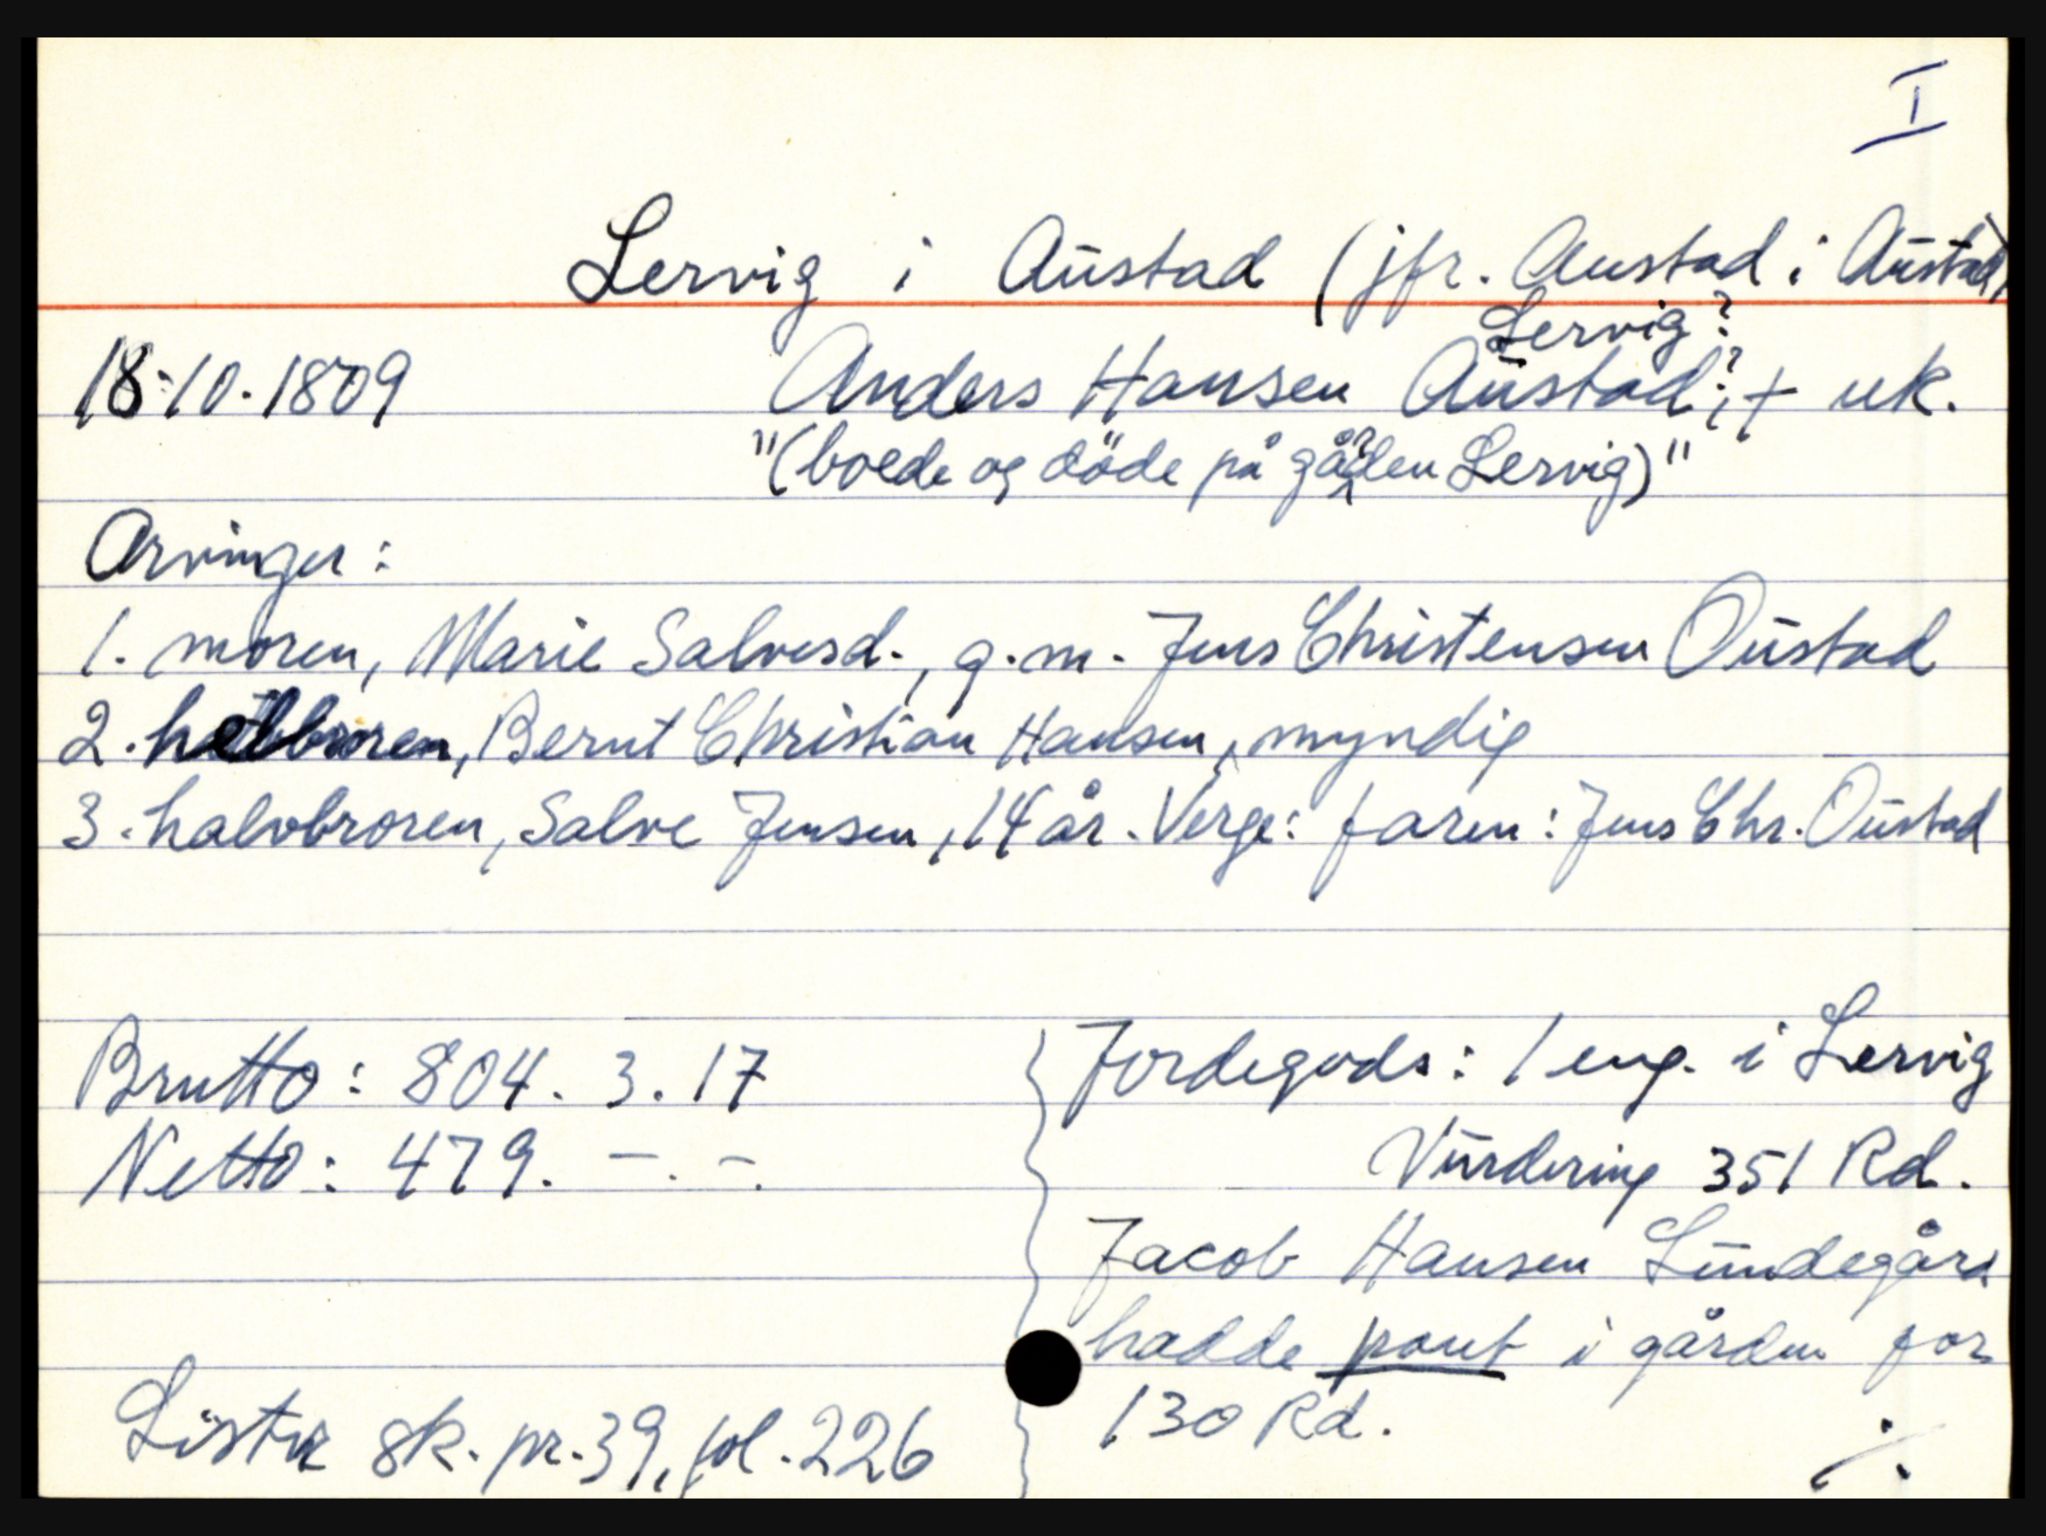 I
Lervig i Austad (jfr. Austad i Austad)
Lervig?
18.10.1809 Anders Hansen Austad?, † uk.
"(boede og döde på gården Lervig)"
Arvinger:
1. moren, Marie Salvesd., g.m. Jens Christensen Oustad
2. helbroren, Bernt Christian Hansen, myndig
3. halvbroren, Salve Jensen, 14 år. Verge: faren: Jens Chr. Oustad
Brutto: 804. 3. 17
Netto: 479. –. –.
Jordegods: 1 eng. i Lervig
Vurdering 351 Rd.
Jacob Hansen Lundegård
hadde pant i gården for
130 Rd.
Lister sk. pr. 39, fol. 226
./.